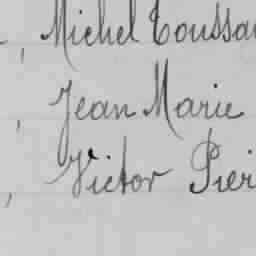 , Michel Toussa
, Jean Marie
, Victor Pier